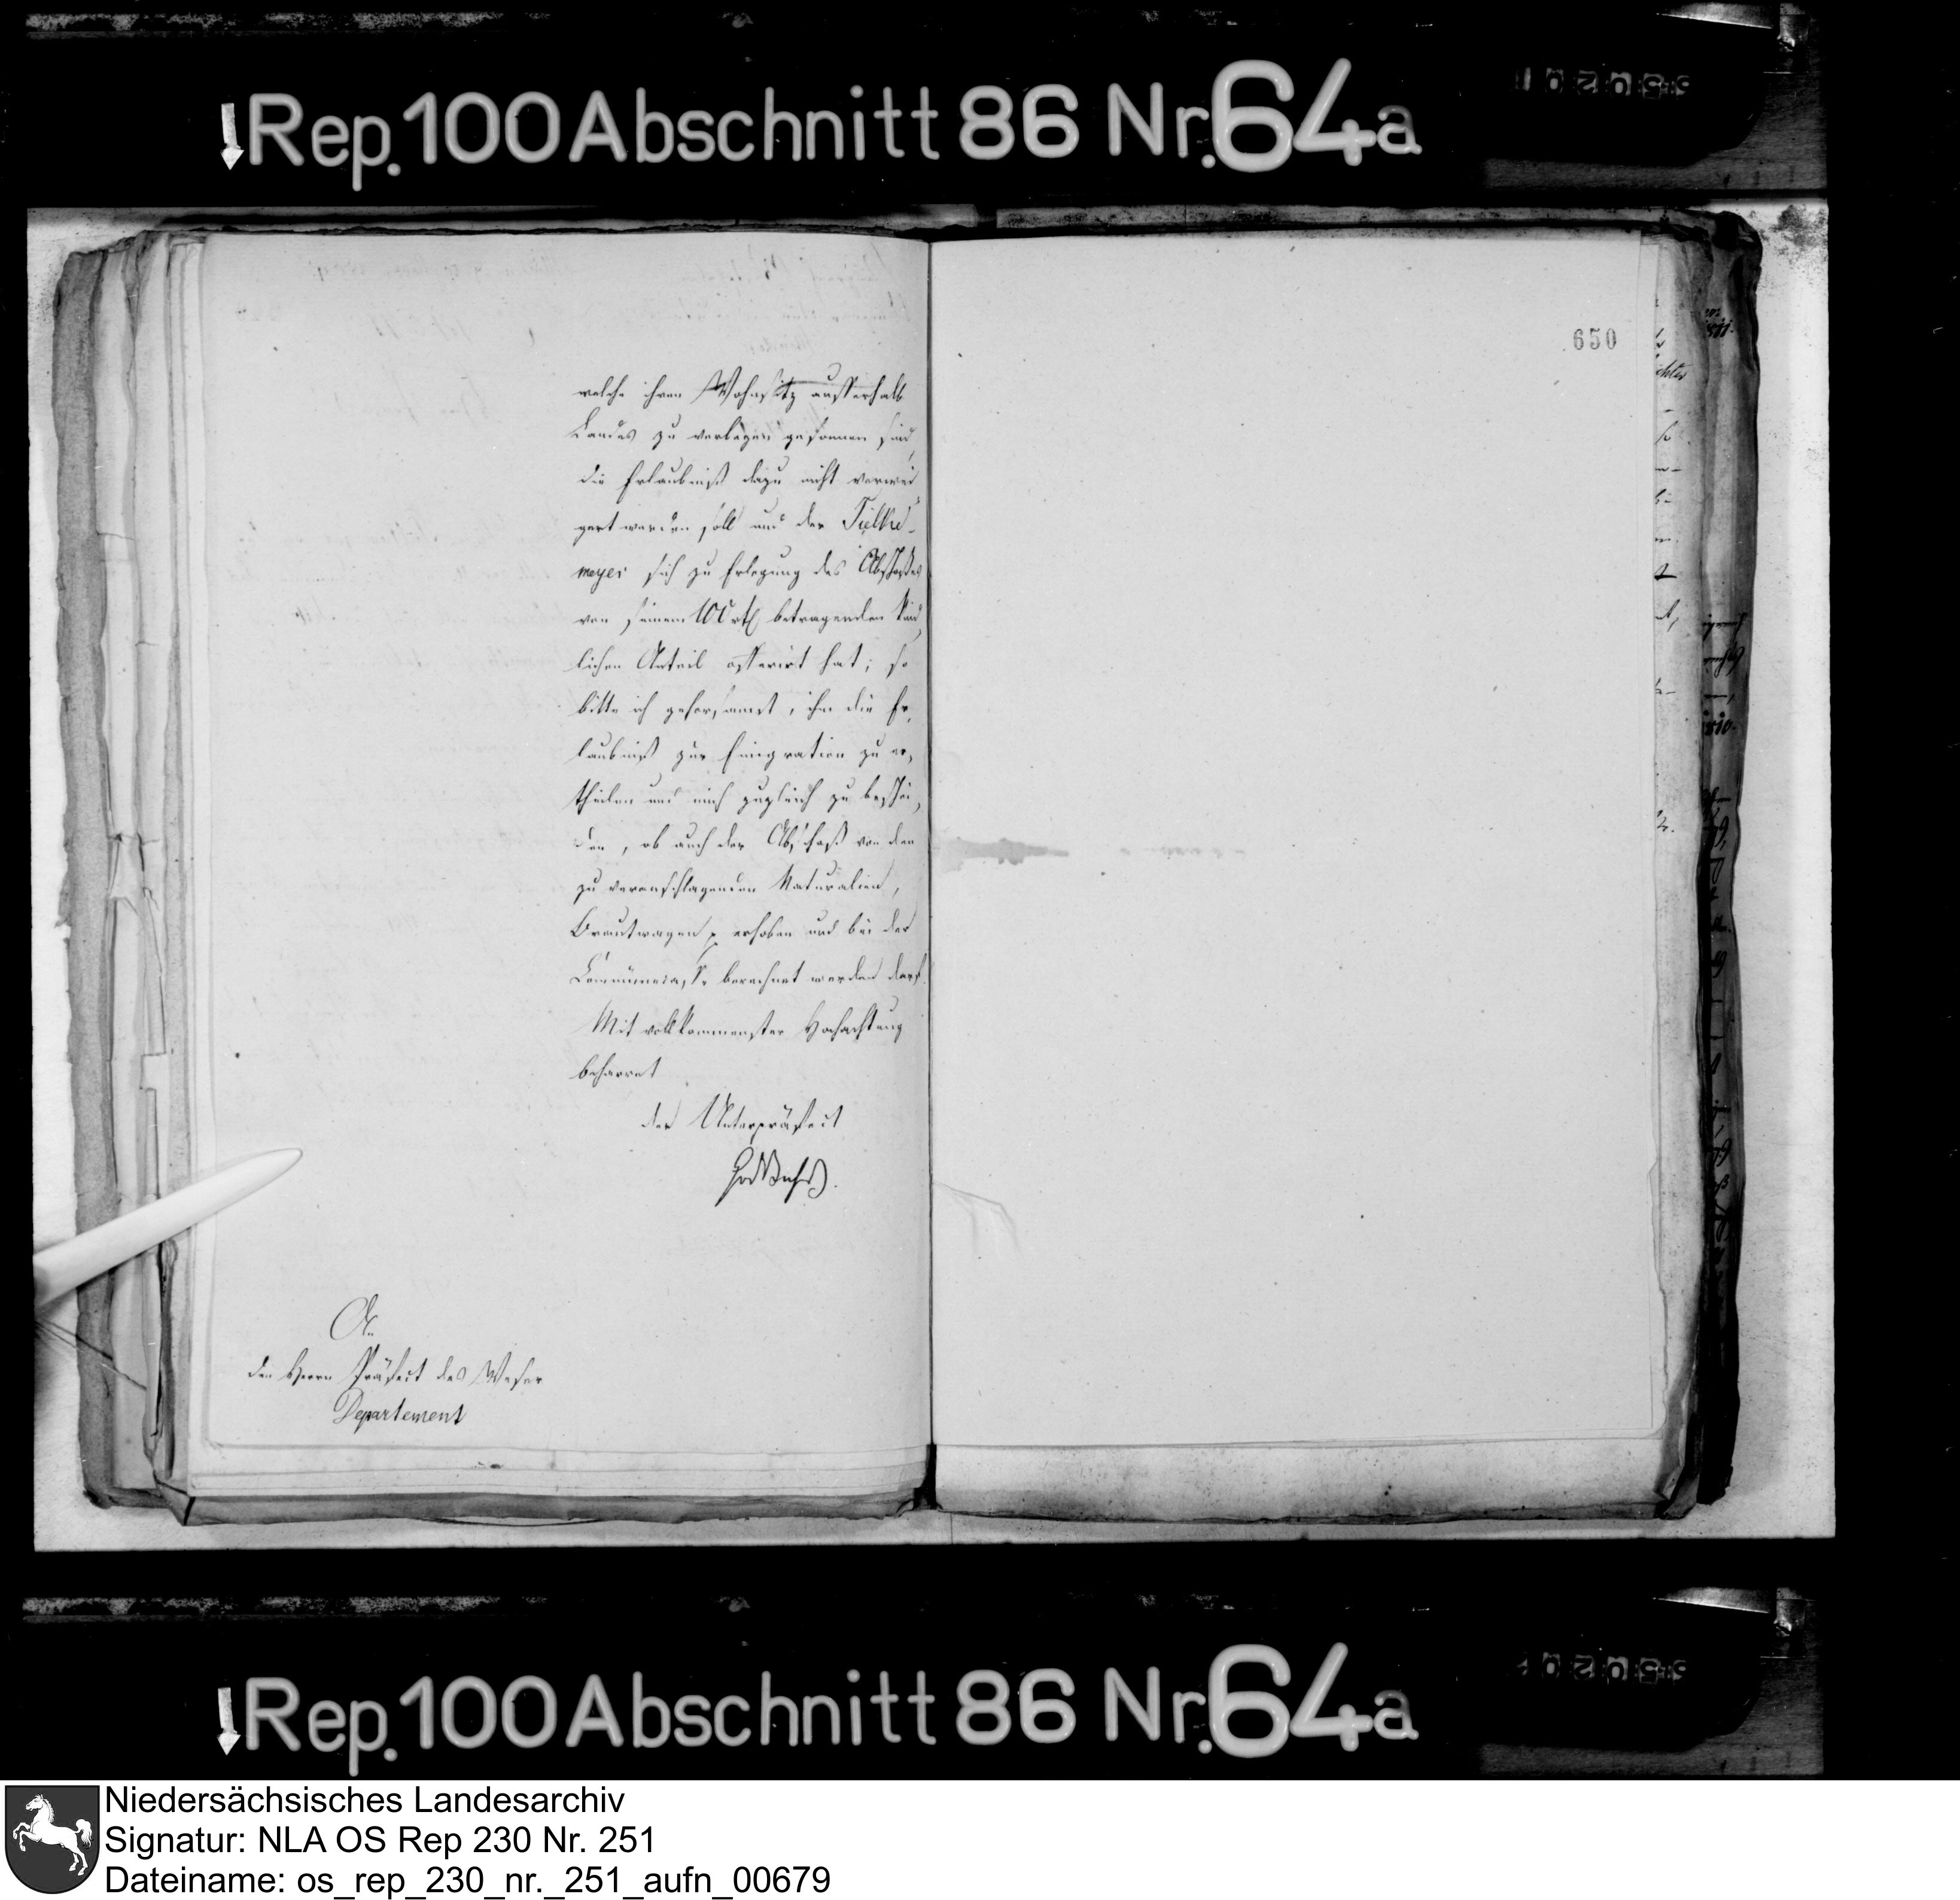 Rep. 100 Abschnitt 86 Nr. 64a
650
welche ihren Wohnsitz ausserhalb
Landes zu verlegen gesonnen sind,
die Erlaubniß dazu nicht verwei
gert werden soll und der Tielke-
meyer sich zu Erlegung des Abschoßes
von seinem 100 rtl betragenden kind
lichen Anteil offerirt hat; so
bitte ich gehorsamst, ihm die Er,
laubniß zur Emigration zu er,
theilen und mich zugleich zu beschei,
den, ob auch der Abschoß von den
zu veranschlagenden Naturalien,
Brautwagen p erhoben und bei der
Communecasse berechnet werden darf.
Mit vollkommenster Hochachtung
beharret
der Unterpräfect
An
den Herrn Präfect des Weser
Departement
Rep. 100 Abschnitt 86 Nr. 64a
Niedersächsisches Landesarchiv
Signatur: NLA OS Rep 230 Nr. 251
Dateiname: os_rep_230_nr._251_aufn_00679